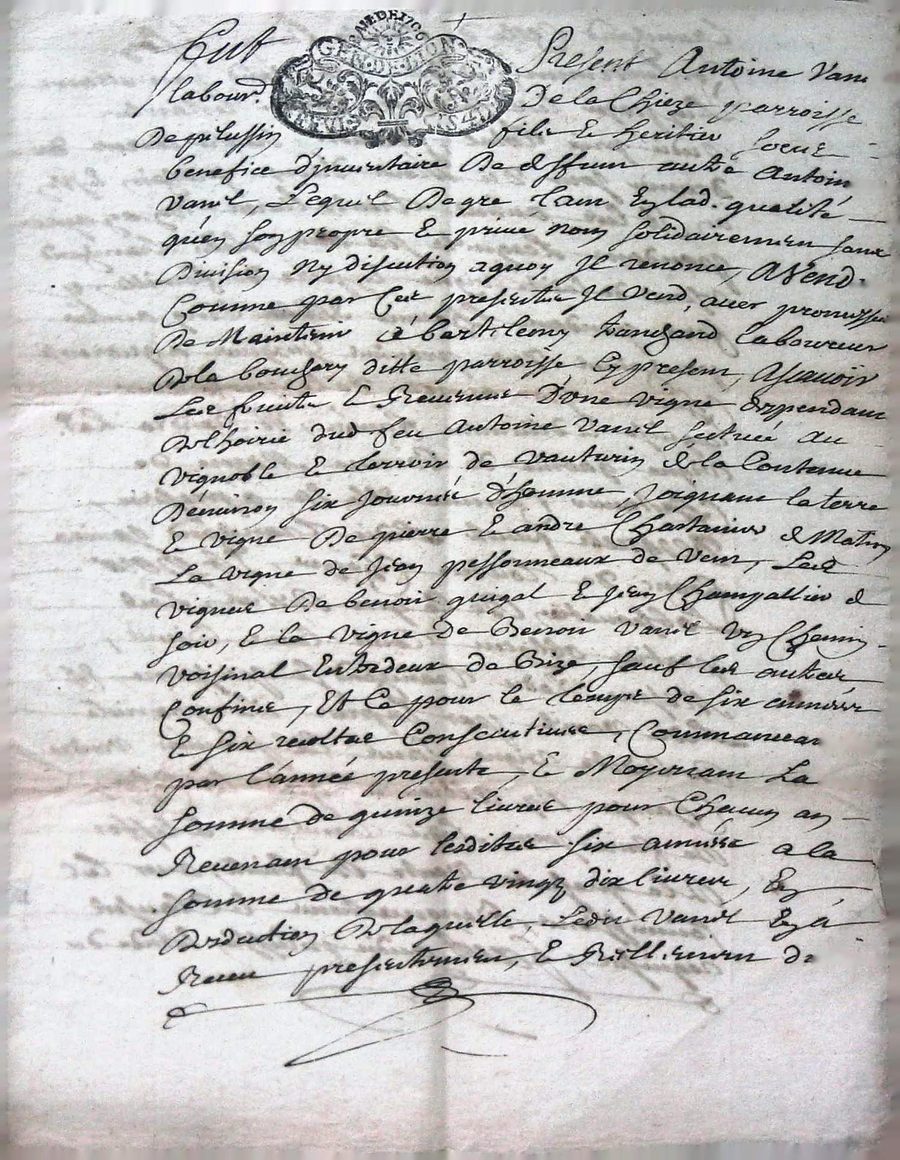 GEN. DE LION
Fut Present Antoine Vanel
labour. De la Chieze parroisse
De pelussin fils & heritier soubs
benefice d'jnventaire De deffunt autre Antoine
Vanel, Lequel De gré tant En lad. qualité
qu'en son propre & privé nom solidairement sans
Division Ny discution aquoy Jl renonce, A Vend.
Comme par Ces presentes Jl Vend, avec promesse
De Maintenir à bartelemy laboureur
De la ditte parroisse Cy present, Ascavoir
Les fruits & Revenus D'une vigne Deppendant
De lhoirie dud feu Antoine Vanel scituée au
vignoble & terroir de vauturin de la Contenue
D'environ six Journée d'homme, Joignant la terre
& vigne De pierre & andré de Matin
La vigne de Jean pessonneaux de vent, Les
vignes De benoit & Jean Champallier de
soir, & la vigne de Benoit Vanel un Chemin
voisinal Entredeux de Bize, sauf les autres
Confins, Et Ce pour le temps de six années
& six recoltes Consecutives, Commancear
par l'année presente, & Moyenant La
somme de quinze livres pour Chacun an
Revenant pour lesdites six années a la
somme de quatre vingt dix livres, En
Deduction De laquelle, Ledit Vanel En a
Receu presentement, & Reellement de